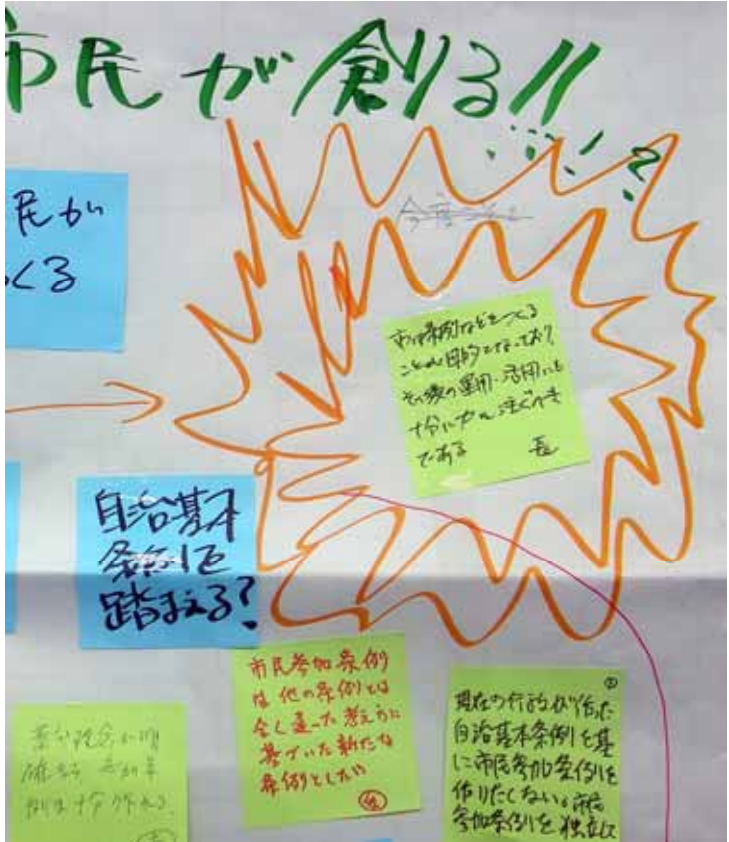 市民が創る!!
民が
くる
市は条例などをつくる
ことが目的となっており、
その後の運用・活用にも
十分に力を注ぐべき
である 長
自治基本
条例を
踏まえる?
市民参加条例
は他の条例とは
全く違った考え方に
基づいた新たな
条例としたい
現在の行政が作った
自治基本条例を基
に市民参加条例を
作りたくない。市民
参加条例を独立して